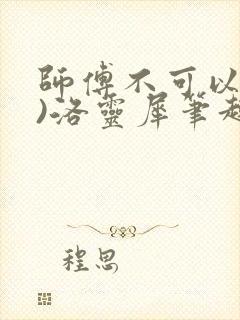 師傅不可以
)洛靈犀筆趣
程思